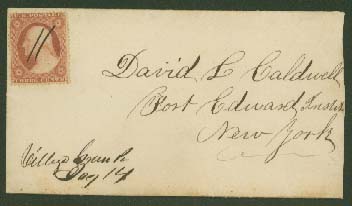 U.S. POSTAGE
THREE CENTS
David L Caldwell
Fort Edward Institute
New York
14